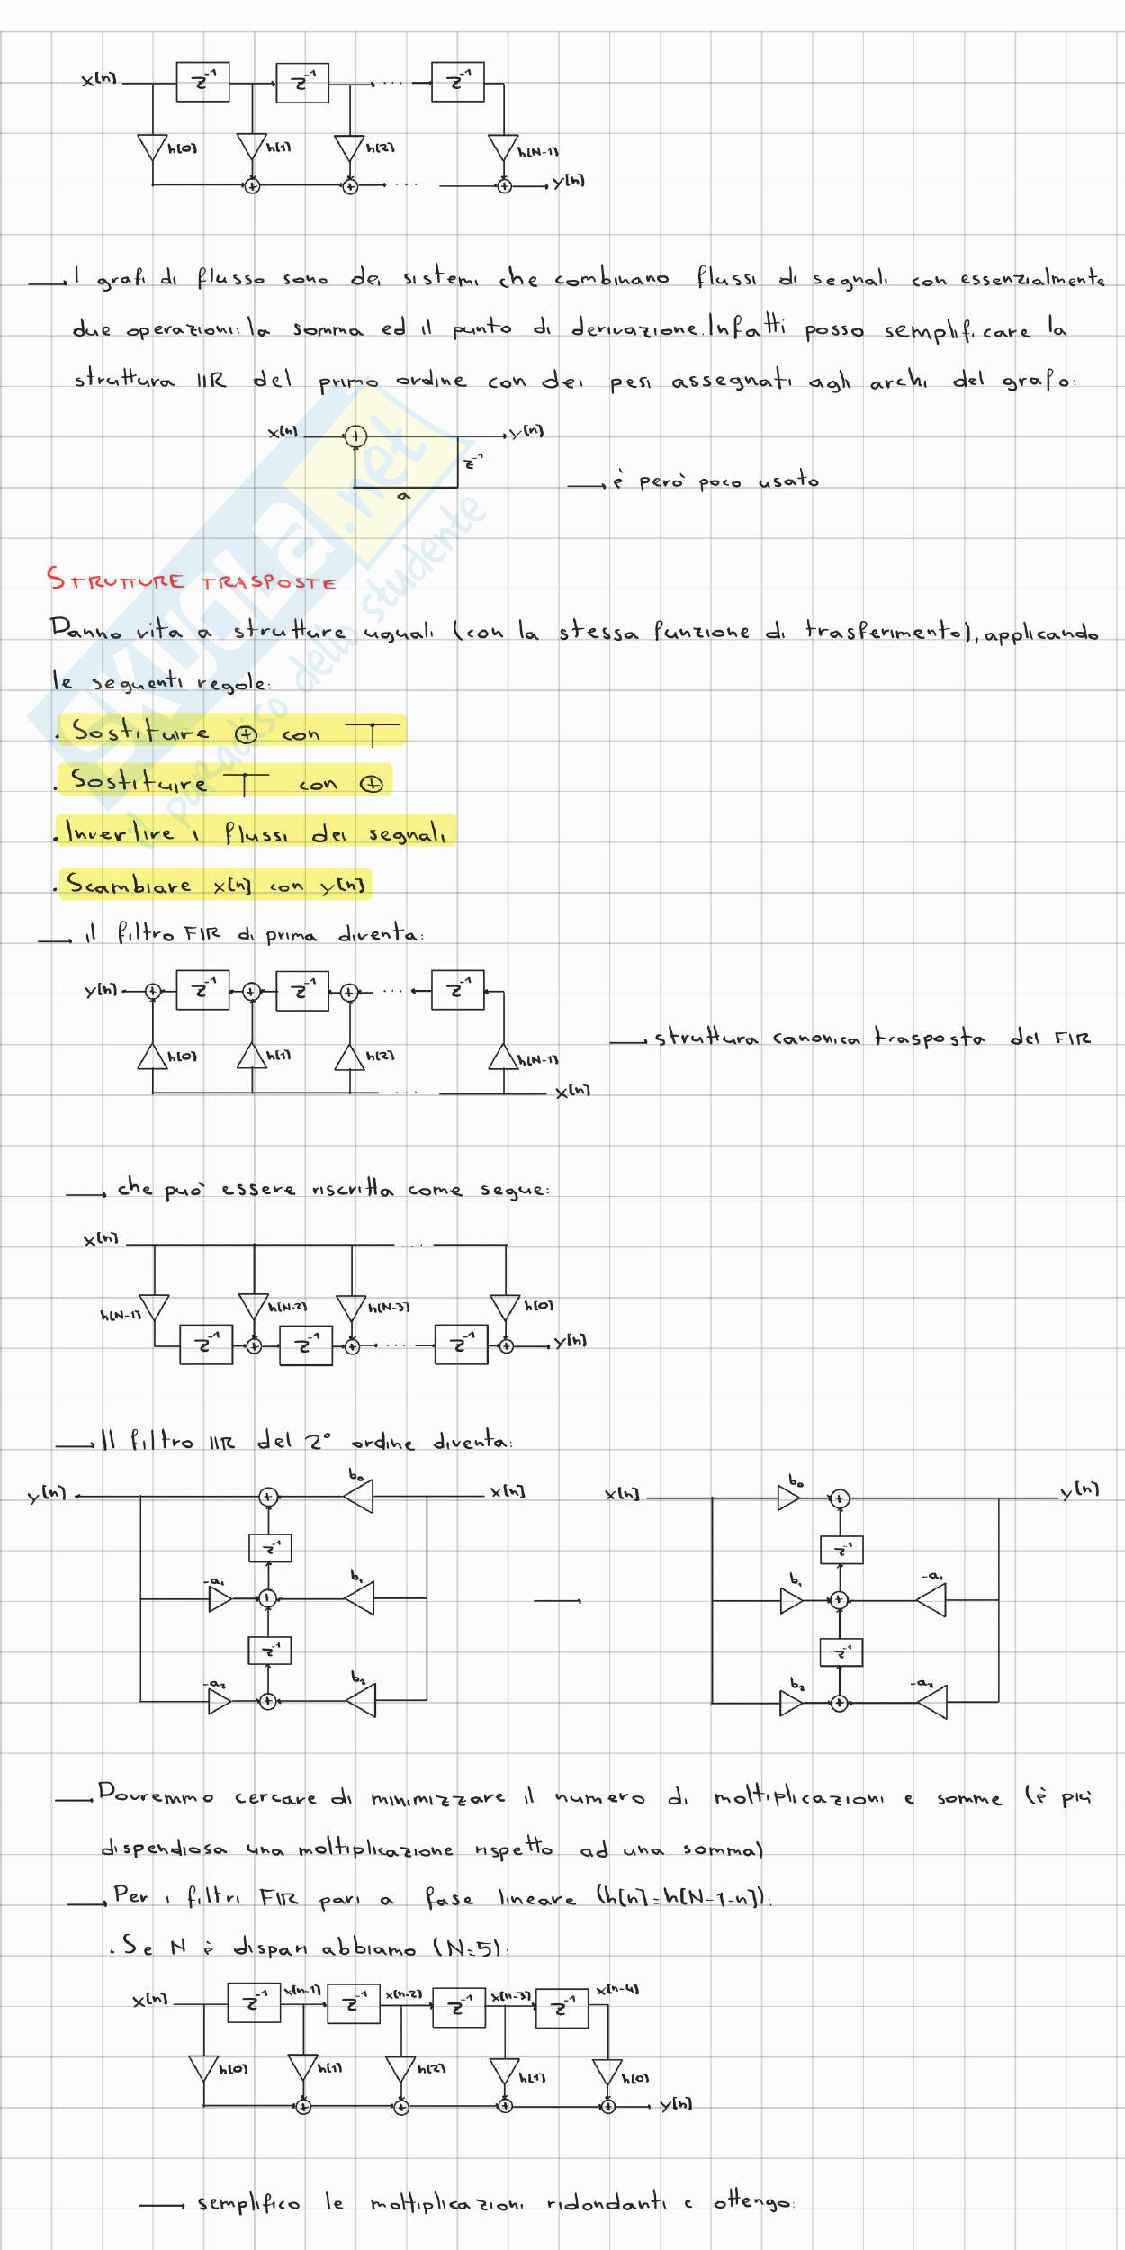 x[n] z⁻¹ z⁻¹ ... z⁻¹
h[0] h[1] h[2] h[N-1]
+ + ... + y[n]
→ I grafi di flusso sono dei sistemi che combinano flussi di segnali con essenzialmente
due operazioni: la somma ed il punto di derivazione. Infatti posso semplificare la
struttura IIR del primo ordine con dei pesi assegnati agli archi del grafo:
x[n] + y[n]
z⁻¹
a
→ è però poco usato
STRUTTURE TRASPOSTE
Danno vita a strutture uguali (con la stessa funzione di trasferimento), applicando
le seguenti regole:
. Sostituire ⊕ con ┬
. Sostituire ┬ con ⊕
. Invertire i flussi dei segnali
. Scambiare x[n] con y[n]
→ il filtro FIR di prima diventa:
y[n] + z⁻¹ + z⁻¹ + ... z⁻¹
h[0] h[1] h[2] h[N-1]
... x[n]
→ struttura canonica trasposta del FIR
→ che può essere riscritta come segue:
x[n] ...
h[N-1] h[N-2] h[N-3] h[0]
z⁻¹ + z⁻¹ + ... z⁻¹ + y[n]
→ Il filtro IIR del 2° ordine diventa:
y[n] + b₀ x[n]
z⁻¹
-a₁ + b₁
z⁻¹
-a₂ + b₂
→
x[n] b₀ + y[n]
z⁻¹
b₁ + -a₁
z⁻¹
b₂ + -a₂
→ Dovremmo cercare di minimizzare il numero di moltiplicazioni e somme (è più
dispendiosa una moltiplicazione rispetto ad una somma)
→ Per i filtri FIR pari a fase lineare (h[n]=h[N-1-n]).
. Se N è dispari abbiamo (N=5):
x[n] z⁻¹ x[n-1] z⁻¹ x[n-2] z⁻¹ x[n-3] z⁻¹ x[n-4]
h[0] h[1] h[2] h[1] h[0]
+ + + + y[n]
→ semplifico le moltiplicazioni ridondanti e ottengo:
SKUOLA.net
il paradiso dello studente